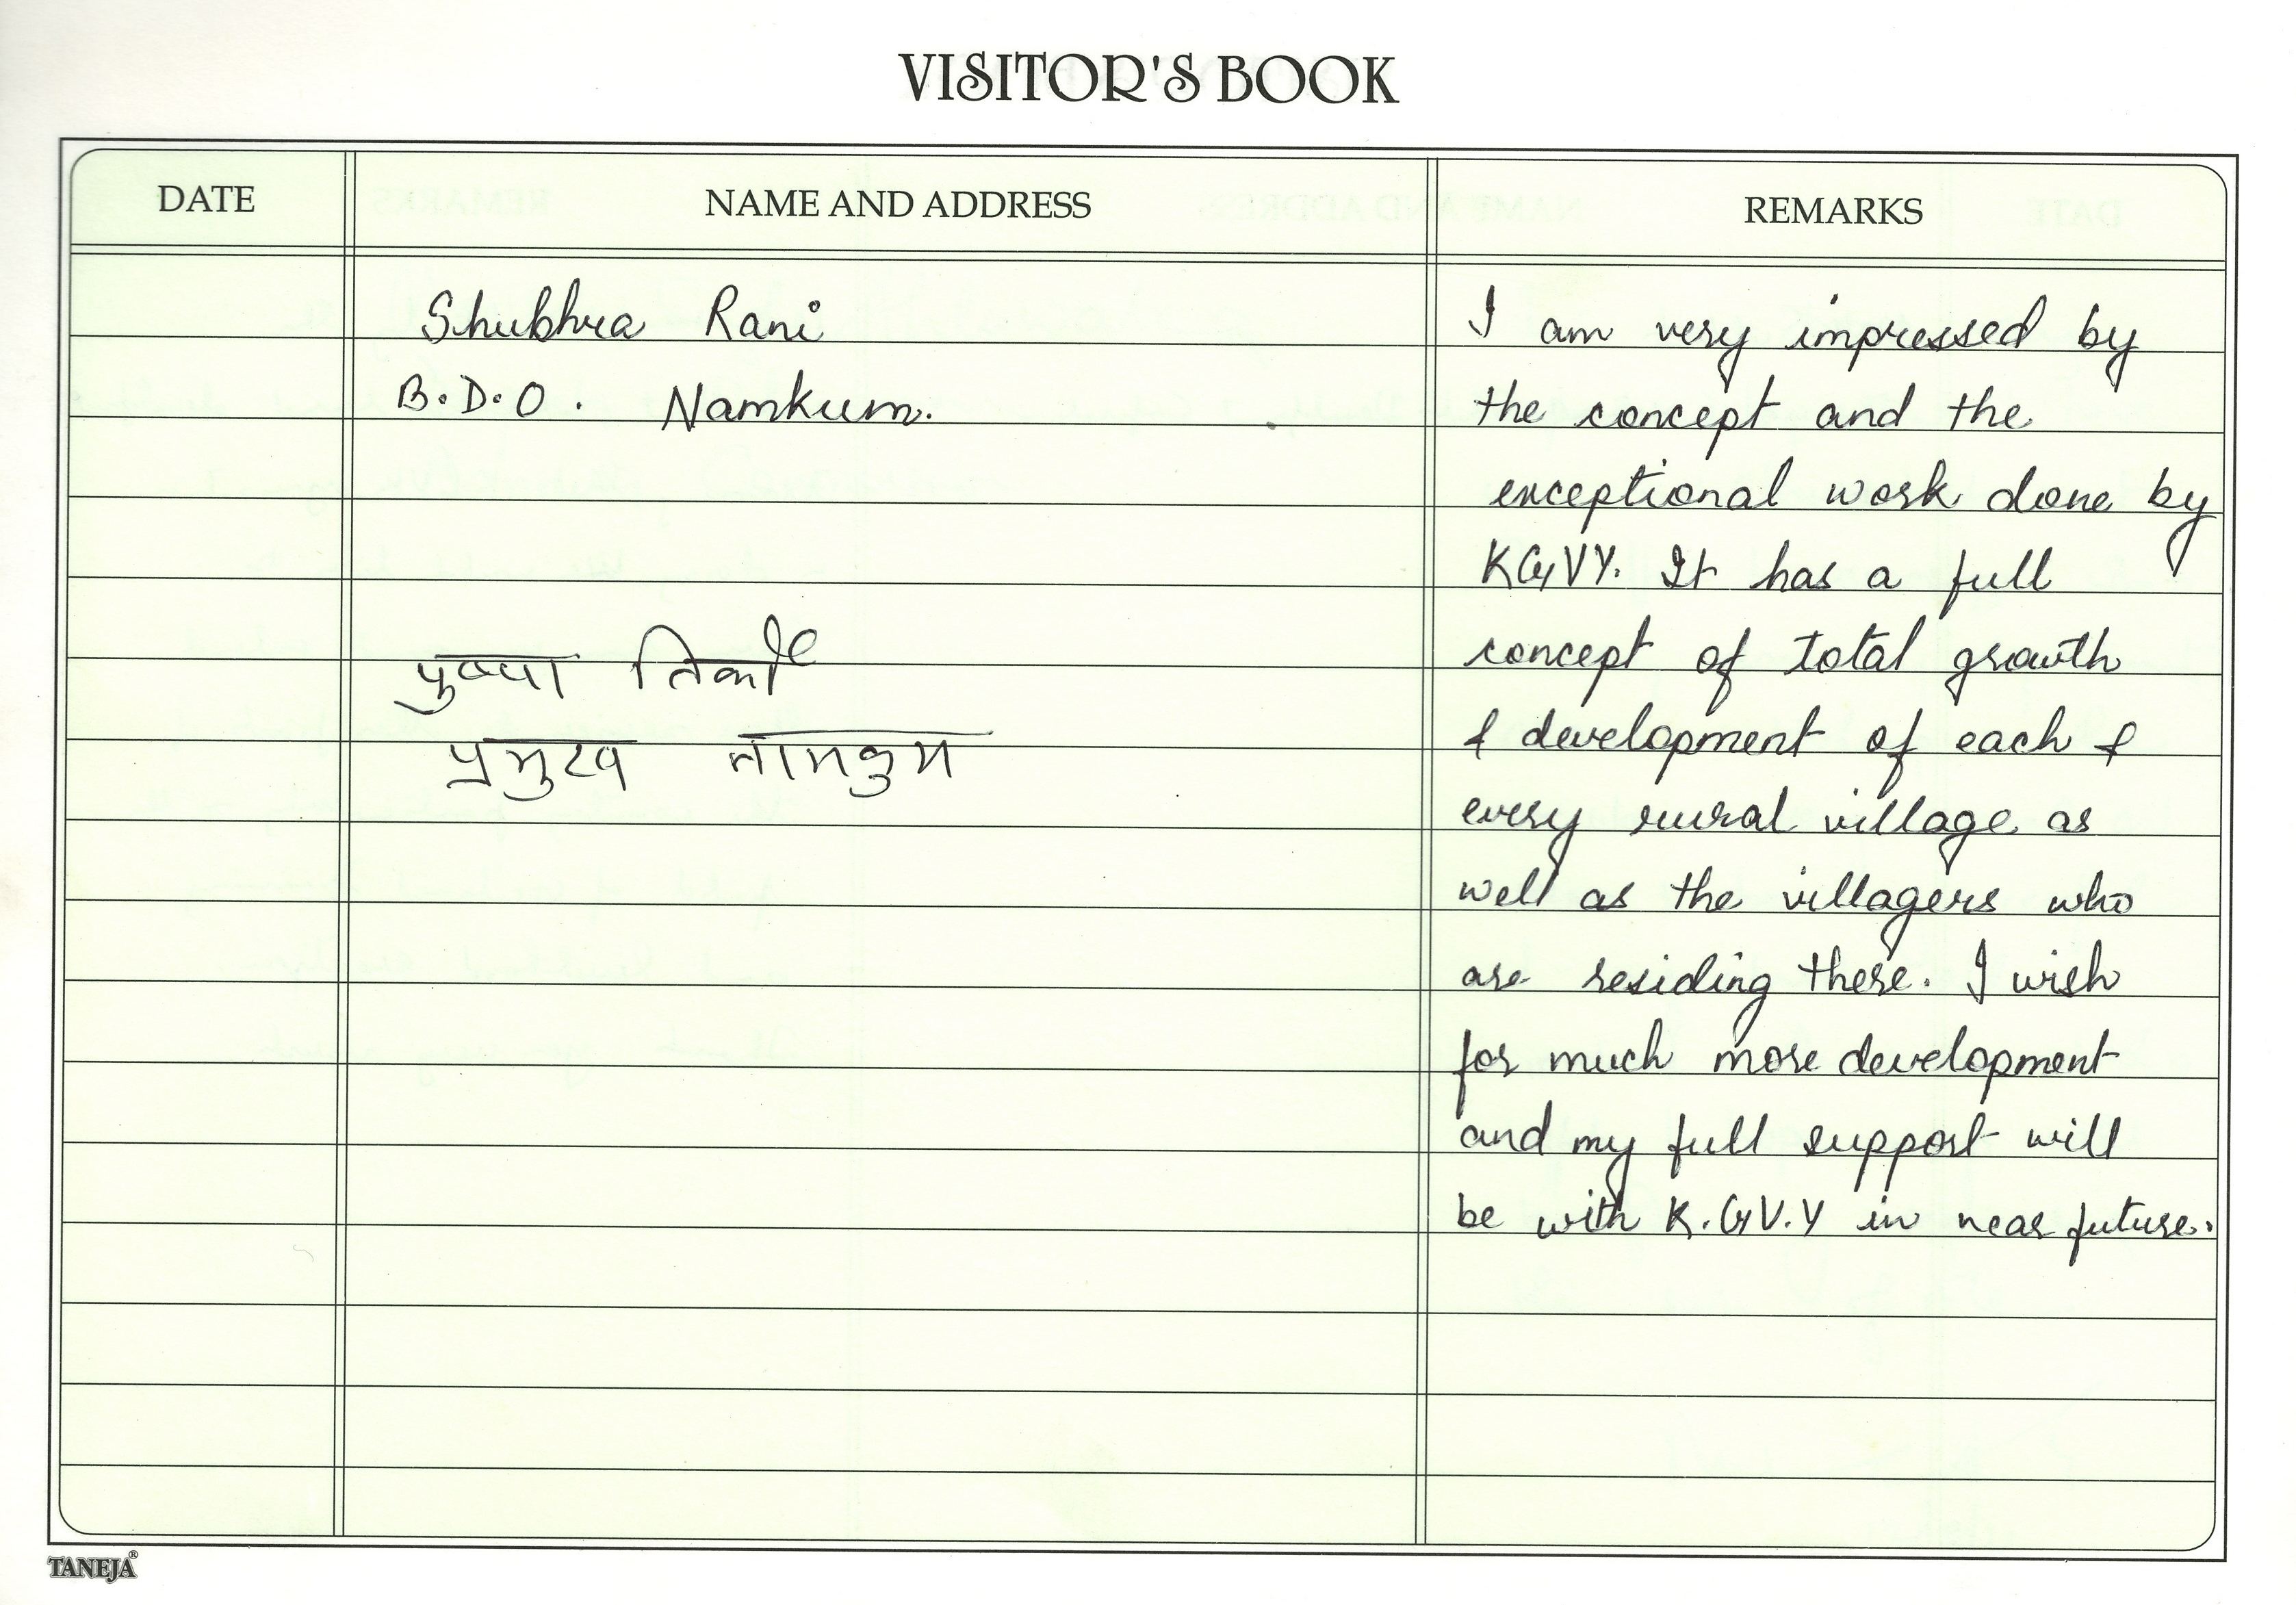 VISITOR'S BOOK
DATE
NAME AND ADDRESS
REMARKS
Shubhra Rani
B.D.O. Namkum.
पुष्पा तिर्की
प्रमुख नामकुम
I am very impressed by
the concept and the
exceptional work done by
KGVY. It has a full
concept of total growth
& development of each &
every rural village as
well as the villagers who
are residing there. I wish
for much more development
and my full support will
be with K.G.V.Y in near future.
TANEJA®